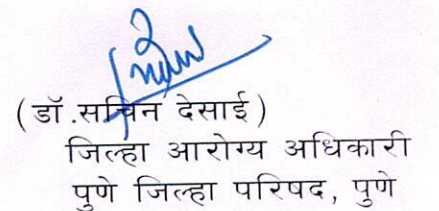 (डॉ.सचिन देसाई)
जिल्हा आरोग्य अधिकारी
पुणे जिल्हा परिषद, पुणे